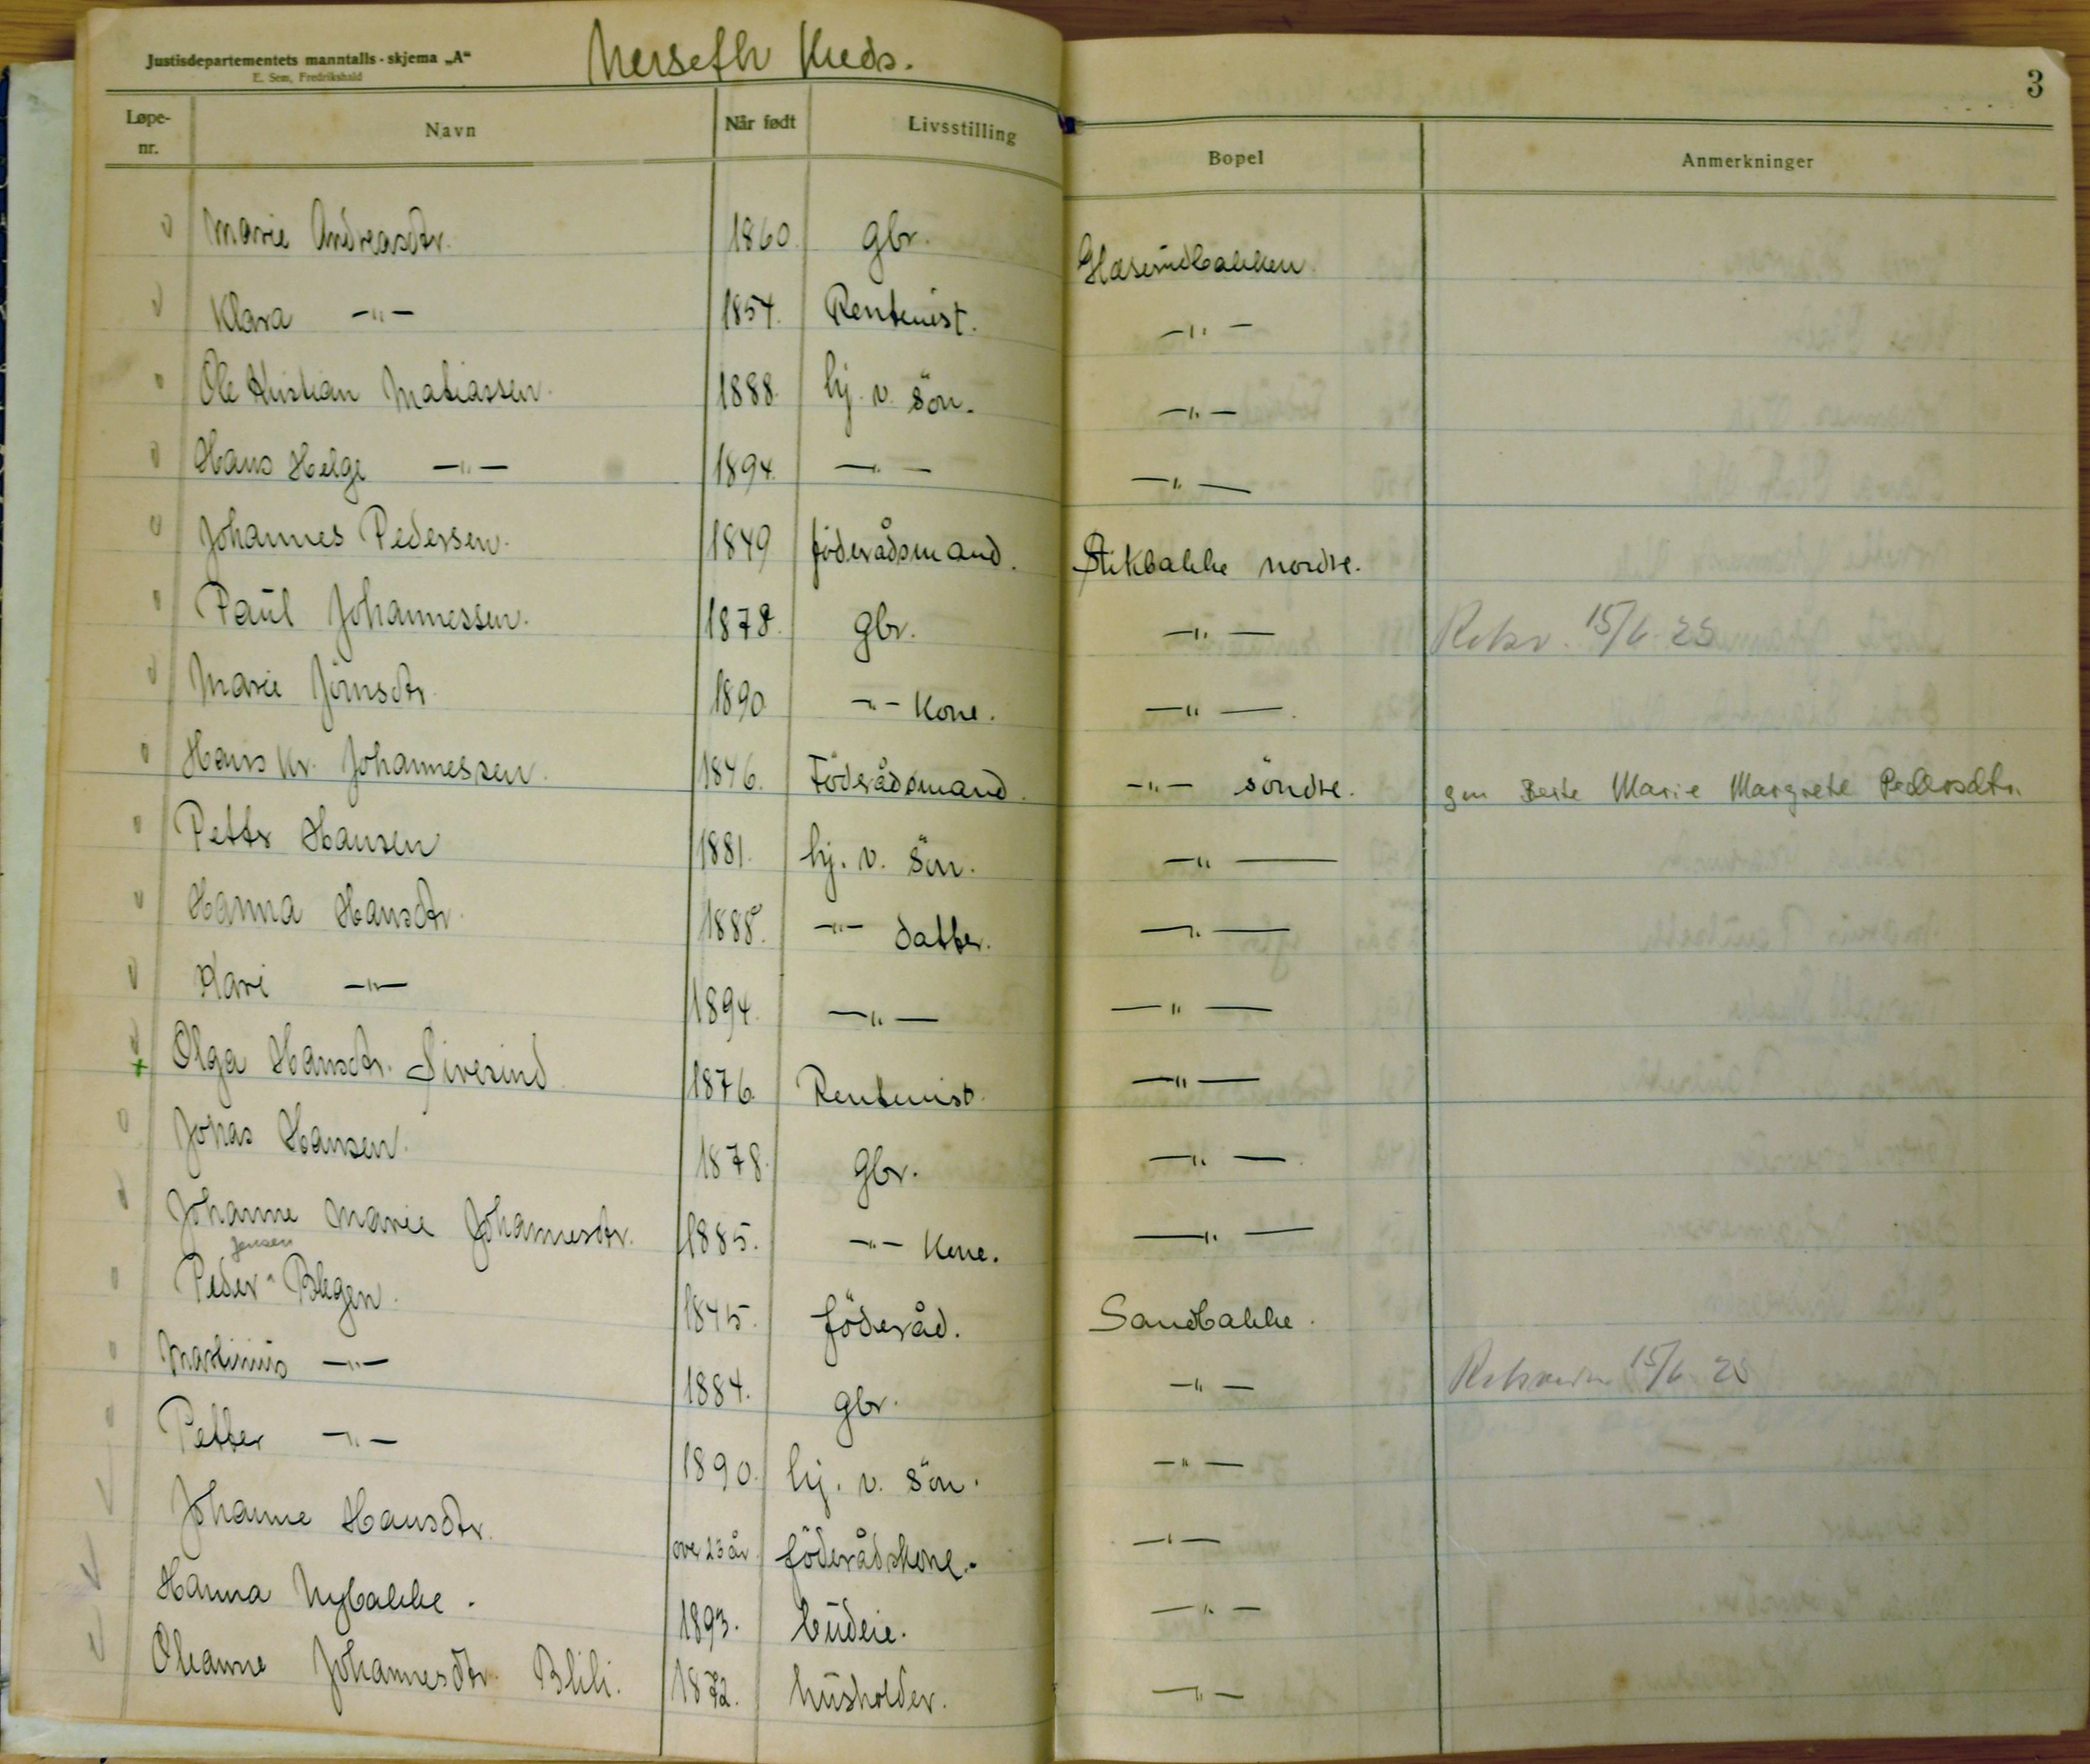 Justisdepartementets manntalls-skjema „A“
E. Sem, Fredrikshald
Nerseth Kreds.
3
Løpe-nr. Navn Når født Livsstilling Bopel Anmerkninger
Marie Andreasdtr. 1860. gbr. Glæserudbakken
Klara —"— 1854. Rentenist. —"—
Ole Kristian Matiassen. 1888. hj. v. sön. —"—
Hans Helge —"— 1894. —"— —"—
Johannes Pedersen. 1849 föderådsmand. Stikbakke nordre.
Paul Johannessen. 1878. gbr. —"— 15/6-25
Marie Jörnsdtr. 1890 —"— Kone. —"—
Hans Kr. Johannessen. 1846. Föderådsmand. —"— söndre. gm Berte Marie Margrete Pedersdtr.
Petter Hansen 1881. hj. v. sön. —"—
Hanna Hansdtr. 1888. —"— datter. —"—
Kari —"— 1894. —"— —"—
Olga Hansdtr. Sivesind 1876. Rentenist. —"—
Johas Hansen. 1878. gbr. —"—
Johanne Marie Johannesdtr. 1885. —"— Kone. —"—
Jensen
Peder ^ Blegen. 1845. föderåd. Sandbakke.
Martinius —"— 1884. gbr. —"— 15/6 25
Petter —"— 1890. hj. v. sön. —"—
Johanne Hansdtr. over 23 år. föderådskone. —"—
Hanna Nybakke. 1893. budeie. —"—
Oleanne Johannesdtr. Blili. 1872. husholder. —"—